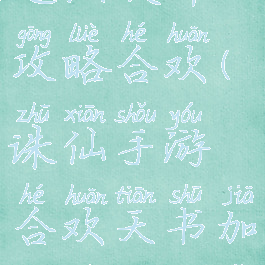 gōng lüè hé huān
攻略合欢(
zhū xiān shǒu yóu
诛仙手游
hé huān tiān shū jiā
合欢天书加